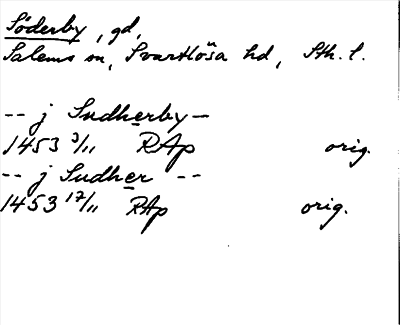 Söderby, gd,
Salems sn, Svartlösa hd, Sth. l.
-- j Sudherby --
1453 3/11 RAp orig.
-- j Sudher --
1453 17/11 RAp orig.